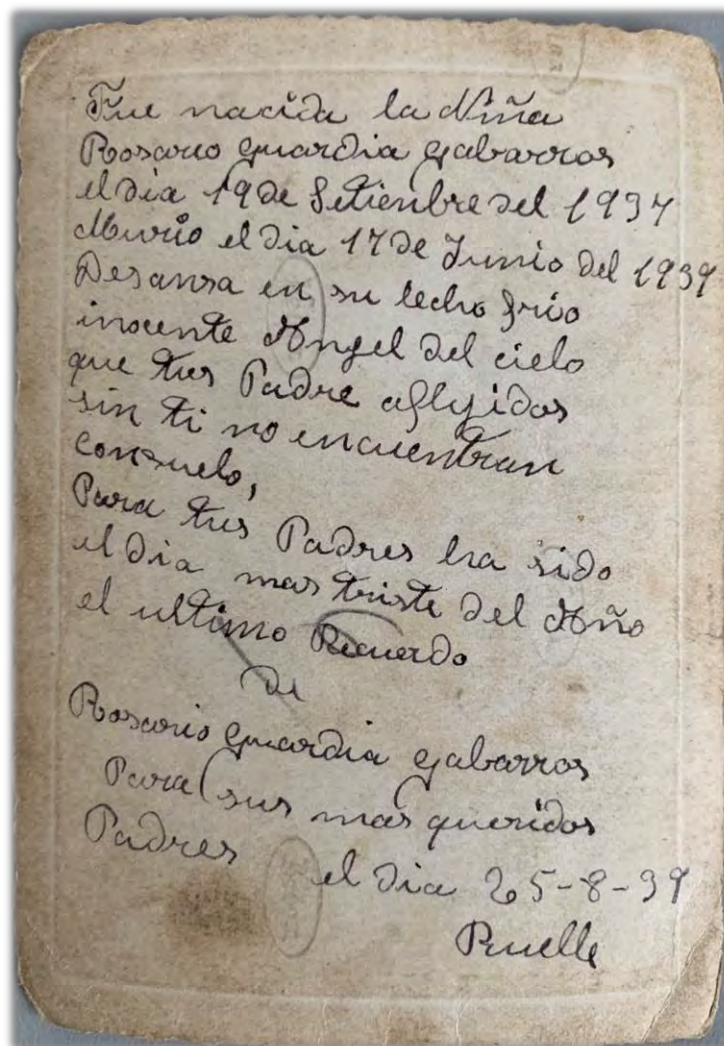 Fue nacida la Niña
Rosario guardia gabarros
el Dia 19 de Setienbre del 1937
Murio el Dia 17 de Junio del 1939
Desansa en su lecho frio
inocente Angel del cielo
que tus Padre aflijidos
sin ti no encuentran
consuelo,
Para tus Padres ha sido
el Dia mas triste del Año
el ultimo Recuerdo
de
Rosario guardia gabarros
Para sus mas queridos
Padres el Dia 25-8-39
Ruelle